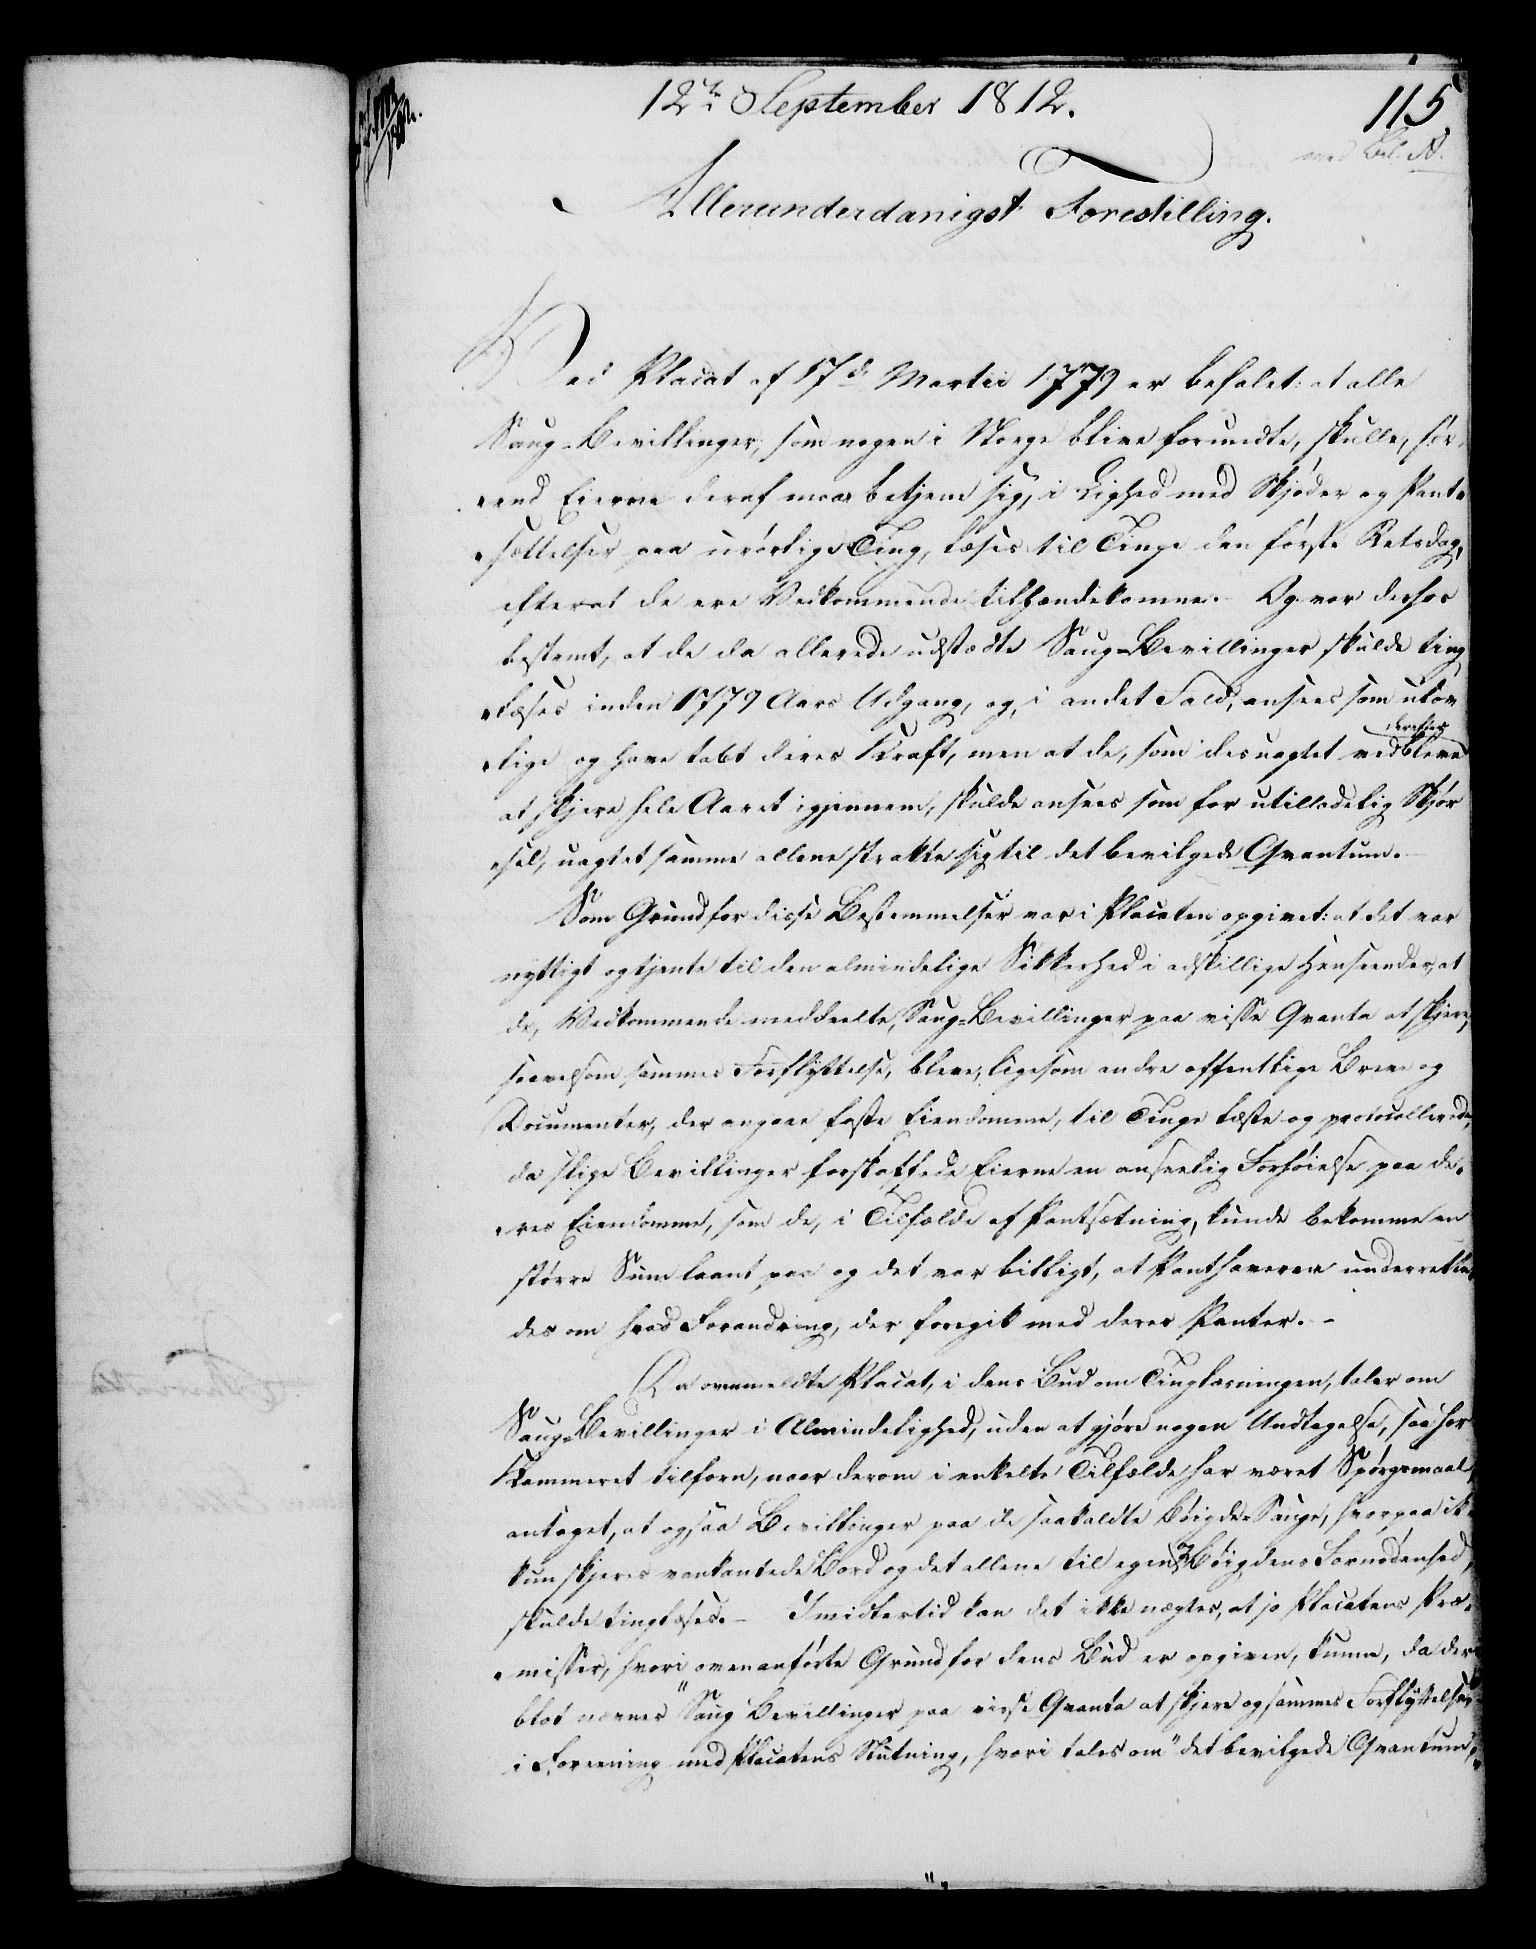 12te September 1812.
115
med Bil. A.
Allerunderdanigst Forestilling.
Ved Placat af 17de Martii 1779 er befalet: at alle
Saug-Bevillinger, som nogen i Norge blive forundte, skulle, før-
end Eierne deraf maae betjene sig, i Lighed med Skjøder og Pant-
sættelser paa urørlige Ting, læses til Tinge den første Retsdag,
efterat de ere Vedkommende tilhændekomne. Og var derhos
bestemt, at de da allerede udstædte Saug-Bevillinger skulde ting-
læses inden 1779 Aars Udgang, og, i andet Fald, ansees som ulov-
lige og have tabt deres Kraft, men at de, som desuagtet derefter vedbleve
at skjere hele Aaret igjennem, skulde ansees som for utilladelig Skjør-
sel, uagtet samme allene strakte sig til det bevilgede Qvantum.
Som Grund for disse Bestemmelser var i Placaten opgivet: at det var
nyttigt og tjente til den almindelige Sikkerhed i adskillige Henseender, at
de, Vedkommende meddeelte, Saug-Bevillinger paa visse Qvanta at skjere,
saavelsom sammes Forflyttelse, bleve, ligesom andre offentlige Breve og
Documenter, der angaae faste Eiendomme, til Tinge læste og protocollerede,
da slige Bevillinger forskaffede Eierne en anseelig Forhøielse paa de-
res Eiendomme, som de, i Tilfælde af Pantsætning, kunde bekomme en
større Sum laant paa og det var billigt, at Panthaverne underrette-
des om hvad Forandring, der foregik med deres Panter.
Da ovenmeldte Placat, i dens Bud om Tinglæsningen, taler om
Saug-Bevillinger i Almindelighed, uden at gjøre nogen Undtagelse, saa har
Kammeret tilforn, naar derom i enkelte Tilfælde har været Spørgsmaal,
antaget, at ogsaa Bevillinger paa de saakaldte Bøigde-Sauge, hvorpaa ik-
kun skjeres vankantede Bord og det allene til egen og Bøigdens Fornødenhed,
skulde tinglæses. Imidlertid kan det ikke nægtes, at jo Placatens Præ-
misser, hvori ovenanførte Grund for dens Bud er opgiven, kunne, da der
blot nævnes "Saug Bevillinger paa visse Qvanta at skjere og sammes Forflyttelse"
i Forening med Placatens Slutning, hvori tales om "det bevilgede Qvantum",